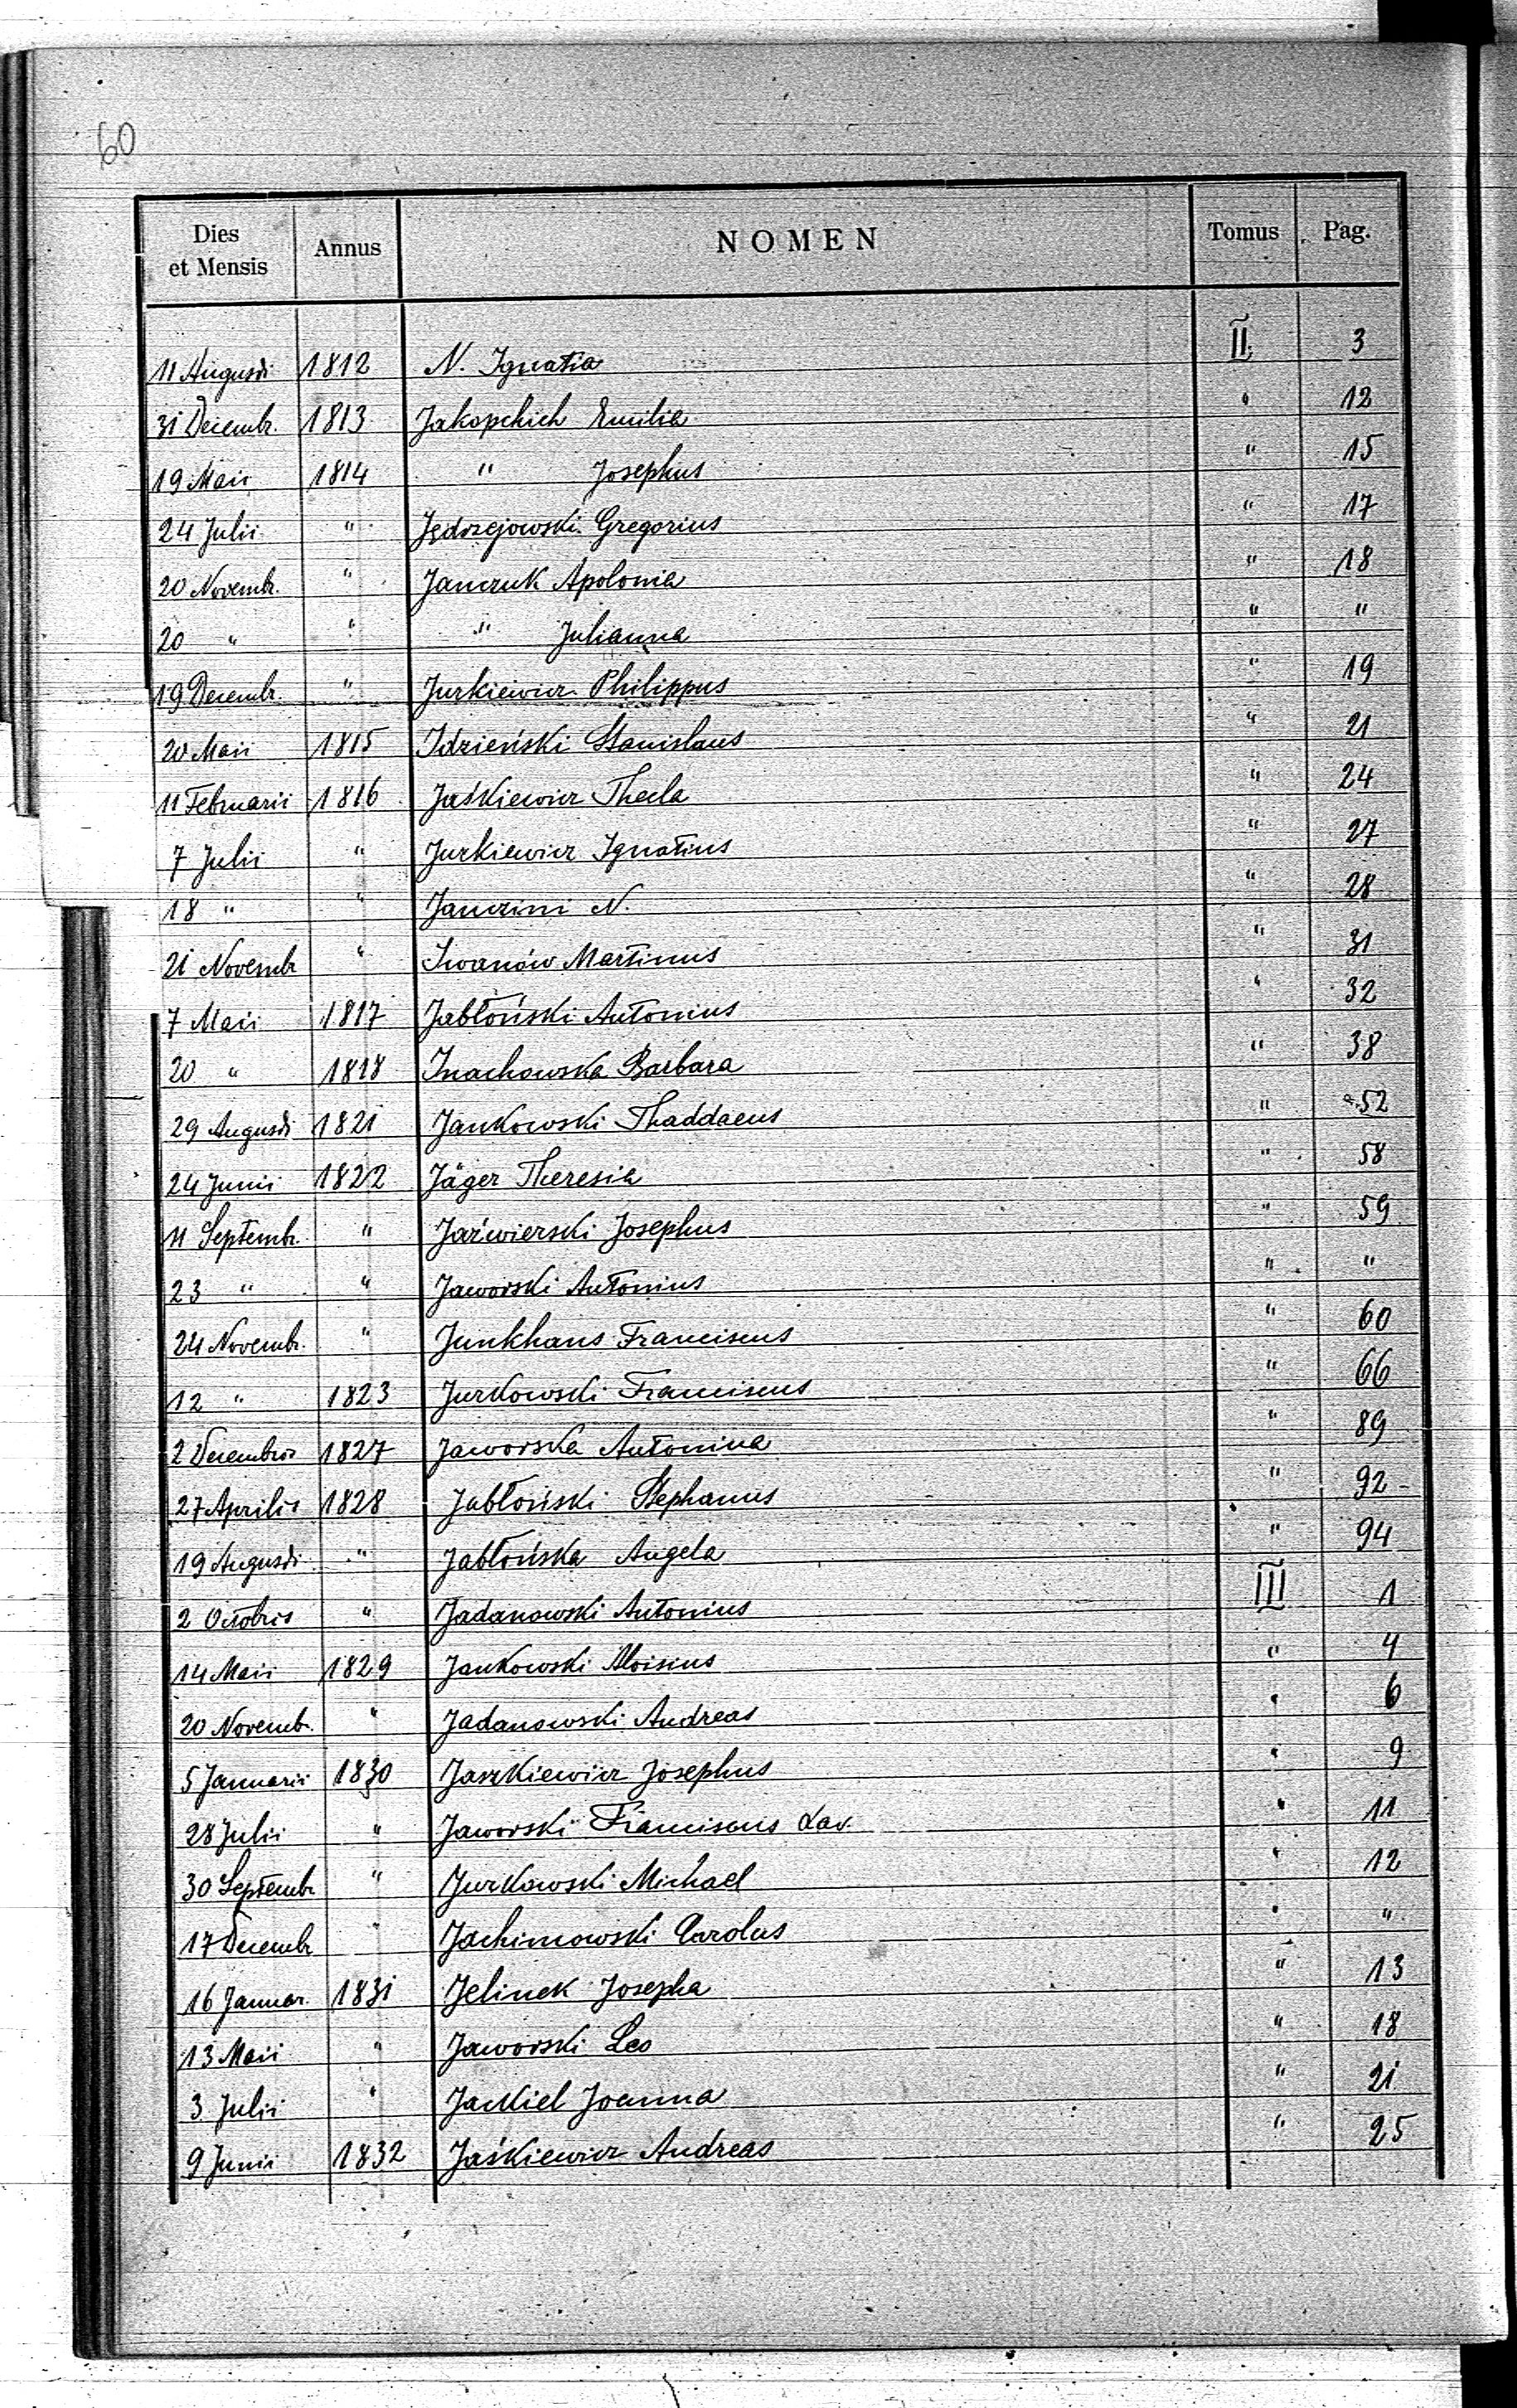 60
Dies et Mensis Annus NOMEN Tomus Pag.
11 Augusti 1812 N. Ignatia II. 3
31 Decembr. 1813 Jakopchich Emilia " 12
19 Maii 1814 " Josephus " 15
24 Julii " Jędrzejowski Gregorius " 17
20 Novembr. " Janczuk Apolonia " 18
20 " " " Julianna " "
19 Decembr. " Jurkiewicz Philippus " 19
20 Maii 1815 Idzieński Stanislaus " 21
11 Februarii 1816 Jaśkiewicz Thecla " 24
7 Julii " Jurkiewicz Ignatius " 27
18 " " Janczini N. " 28
21 Novembr " Iwanów Martinus " 31
7 Maii 1817 Jabłoński Antonius " 32
20 " 1818 Inachowska Barbara " 38
29 Augusti 1821 Jankowski Thaddaeus " 52
24 Junii 1822 Jäger Theresia " 58
11 Septembr. " Jaźwierski Josephus " 59
23 " " Jaworski Antonius " "
24 Novembr. " Junkhans Franciscus " 60
12 " 1823 Jurkowski Franciscus " 66
2 Decembris 1827 Jaworska Antonina " 89
27 Aprilis 1828 Jabłoński Stephanus " 92
19 Augusti " Jabłońska Angela " 94
2 Octobris " Jadanowski Antonius III 1
14 Maii 1829 Jankowski Aloisius " 4
20 Novemb. " Jadanowski Andreas " 6
5 Januarii 1830 Jaszkiewicz Josephus " 9
28 Julii " Jaworski Franciscus Xav. " 11
30 Septembr " Jurkowski Michael " 12
17 Decembr " Jachimowski Carolus " "
16 Januar. 1831 Jelinek Josepha " 13
13 Maii " Jaworski Leo " 18
3 Julii " Jackiel Joanna " 21
9 Junii 1832 Jaśkiewicz Andreas " 25